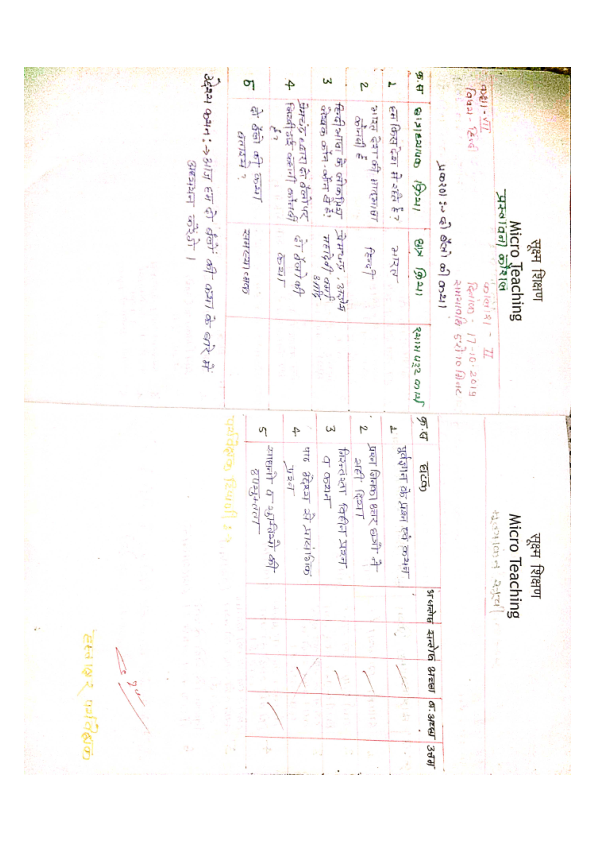 सूक्ष्म शिक्षण
Micro Teaching
प्रस्तावना कौशल
कक्षा - VII
विषय - हिन्दी
कालांश - II
दिनांक : 17-10-2019
समयावधि
प्रकरण :→ दो बैलों की कथा
क्र.सं छात्राध्यापक क्रिया छात्र क्रिया श्यामपट्ट कार्य
1 हम किस देश में रहते है? भारत
2 भारत देश की मातृभाषा कौनसी है हिन्दी
3 हिन्दी भाषा के लोकप्रिय लेखक कौन-कौन से हैं? प्रेमचन्द्र, महादेवी वर्मा आदि
4 प्रेमचंद द्वारा दो बैलो पर लिखी गई कहानी कौनसी है? दो बैलो की कथा
5 दो बैलों की कथा बताइये? समस्यात्मक
उद्देश्य कथन :→ आज हम दो बैलों की कथा के बारे में
अध्ययन करेंगे ।
सूक्ष्म शिक्षण
Micro Teaching
मूल्यांकन सूची
क्र.स घटक अच्छा ब.अच्छा उत्तम
1 पूर्वज्ञान के प्रश्न एवं कथन
2 प्रश्न जिनका उत्तर छात्रों ने सही दिया
3 निरन्तरता विहीन प्रश्न व कथन
4 पाठ उद्देश्य की प्रश्न
5 व की उपयुक्तता
पर्यवेक्षक टिप्पणी :→
हस्ताक्षर पर्यवेक्षक